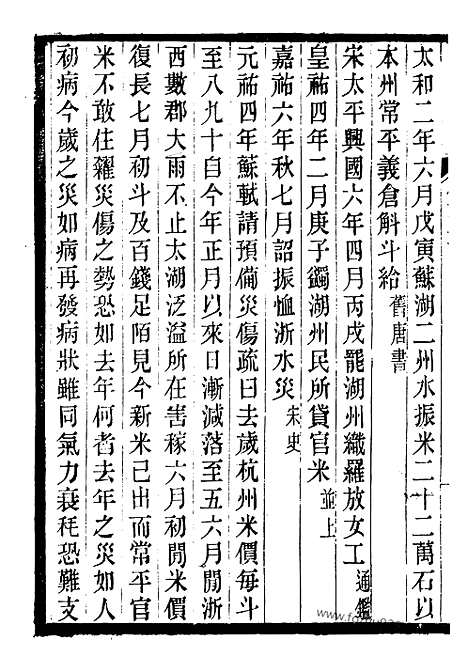 太和二年六月戊寅蘇湖二州水振米二十二萬石以
本州常平義倉斛斗給舊唐書
宋太平興國六年四月丙戌罷湖州織羅放女工通鑑
皇祐四年二月庚子蠲湖州民所貸官米並上
嘉祐六年秋七月詔振恤浙水災宋史
元祐四年蘇軾請預備災傷疏曰去歲杭州米價每斗
至八九十自今年正月以來日漸減落至五六月閒浙
西數郡大雨不止太湖泛溢所在害稼六月初閒米價
復長七月初斗及百錢足陌見今新米已出而常平官
米不敢住糴災傷之勢恐如去年何者去年之災如人
初病今歲之災如病再發病狀雖同氣力衰耗恐難支